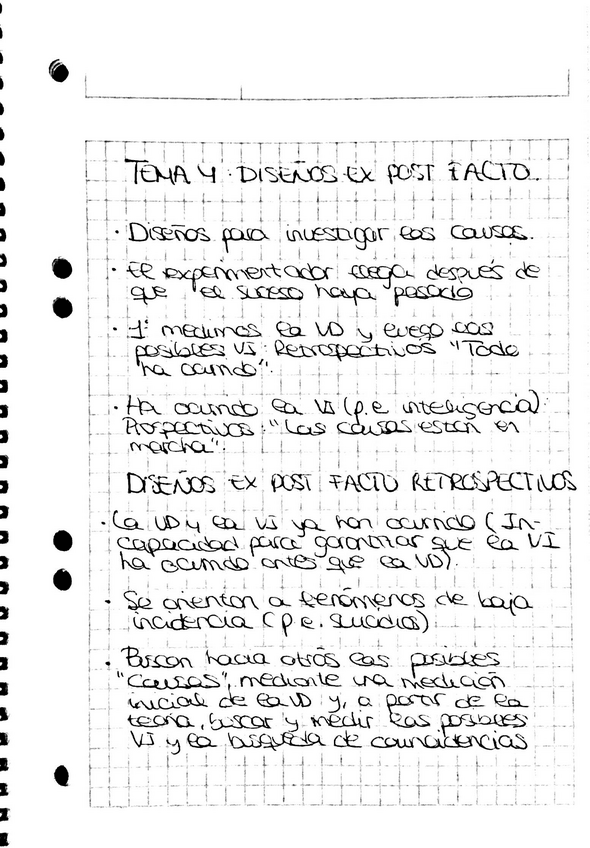 TEMA 4. DISEÑOS EX POST FACTO.
· Diseños para investigar las causas.
· El experimentador llega después de
que el suceso haya pasado
· 1º medimos la VD y luego las
posibles VI: Retrospectivos "Todo
ha ocurrido".
· Ha ocurrido la VI (p.e inteligencia)
Prospectivos: "Las causas están en
marcha".
DISEÑOS EX POST FACTO RETROSPECTIVOS
· La VD y la VI ya han ocurrido (In-
capacidad para garantizar que la VI
ha ocurrido antes que la VD).
· Se orientan a fenómenos de baja
incidencia (p.e. suicidios)
· Buscan hacia atrás las posibles
"causas", mediante una medición
inicial de la VD y, a partir de la
teoría, buscar y medir las posibles
VI y la búsqueda de concidencias